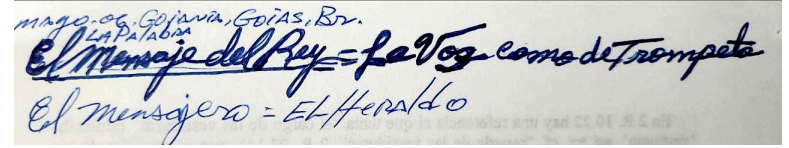 mayo.06.Goiania, Goias, Br.
LA PALABRA
El Mensaje del Rey = La Voz como de Trompeta
El mensajero = EL Heraldo